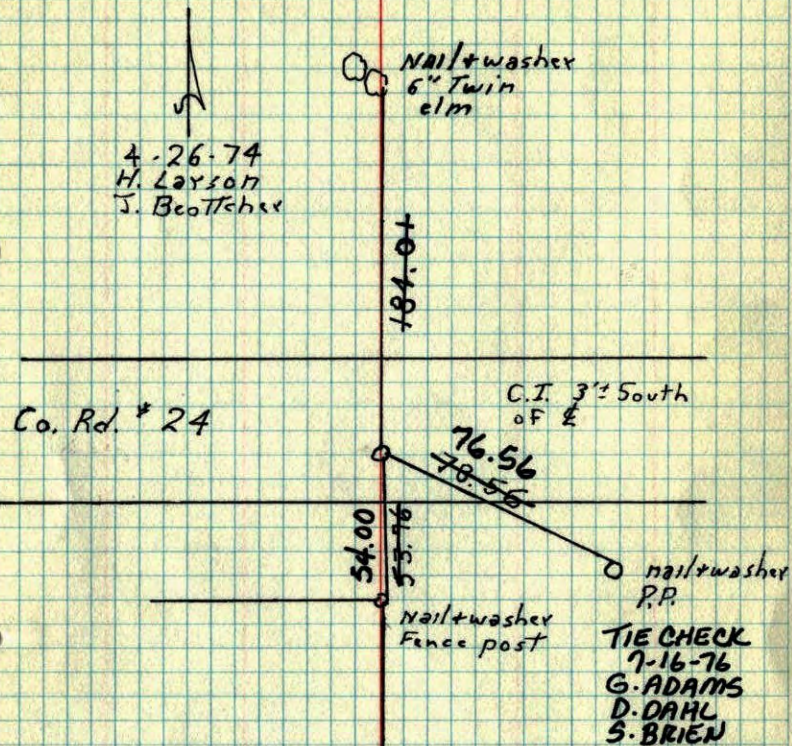 Nail + washer
6" Twin
elm
4-26-74
H. Larson
J. Beottcher
184.01
C.I. 3'± South
of ℄
Co. Rd. # 24
76.56
78.56
54.00
53.76
nail + washer
P.P.
Nail + washer
Fence post
TIE CHECK
7-16-76
G. ADAMS
D. DAHL
S. BRIEN